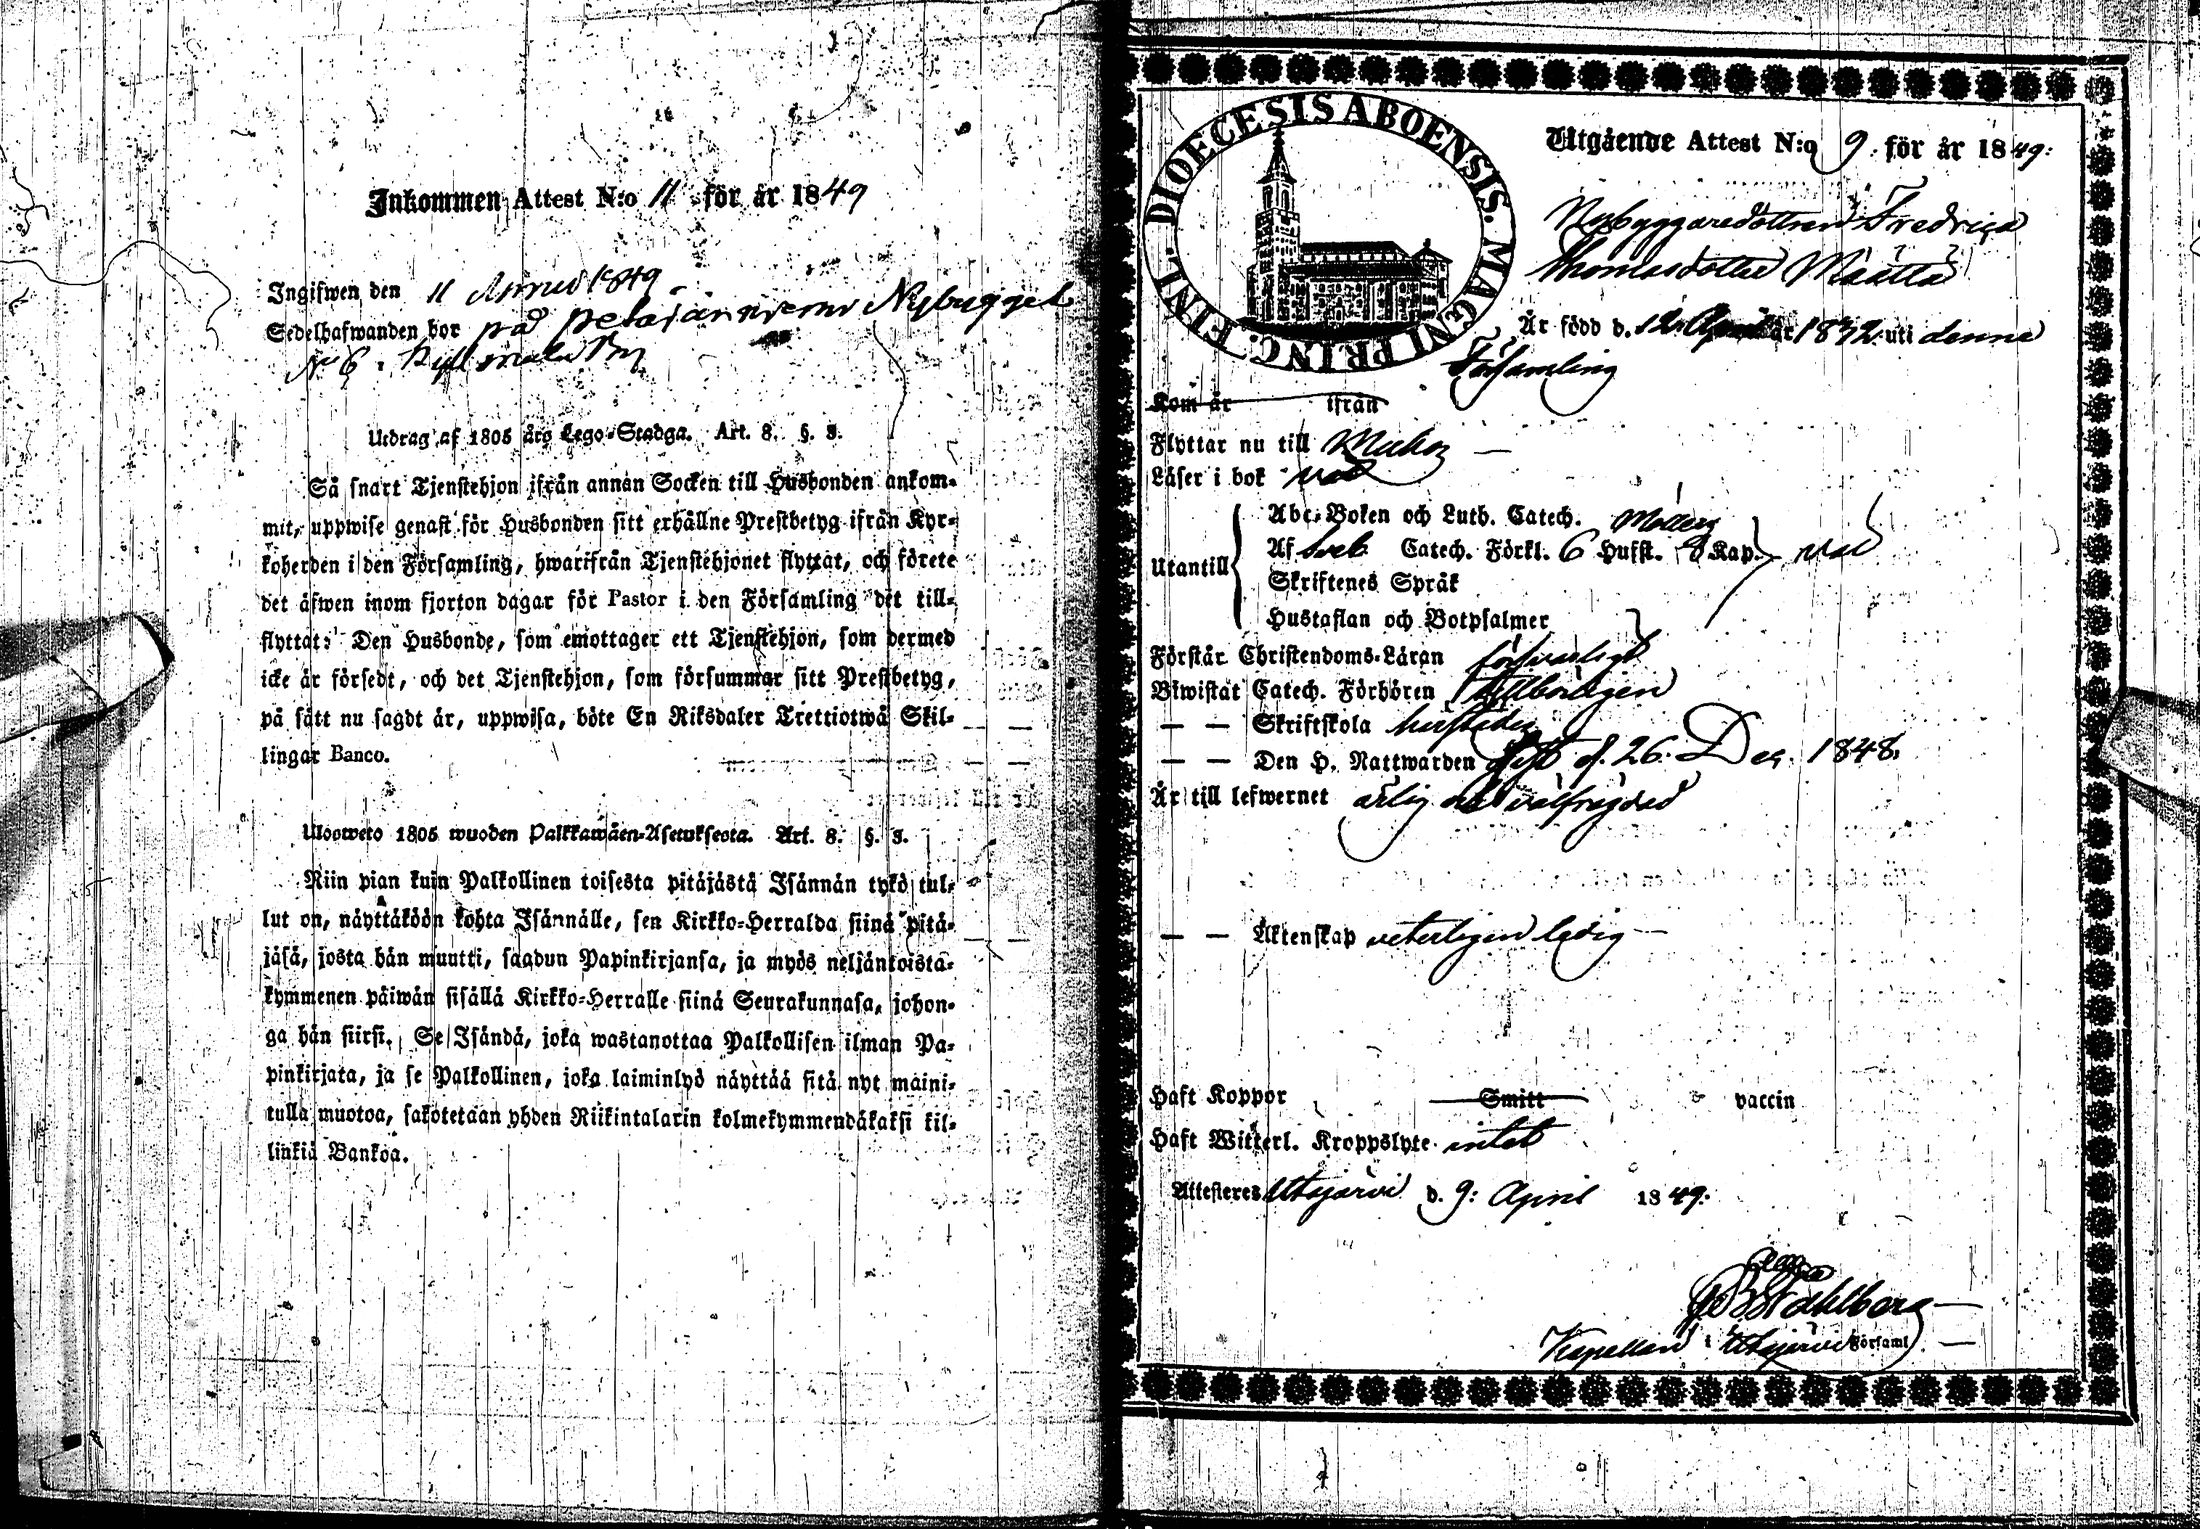 Inkommen Attest N:o 11 för år 1849
Ingifwen den 11 April 1849
Sedelhafwanden bor på Nybygget
N 6. Kylmälä By
Utdrag af 1805 års Lego-Stadga. Art. 8. §. 3.
Så snart Tjenstehjon ifrån annan Socken till Husbonden ankom-
mit, uppwise genast för Husbonden sitt erhållne Prestbetyg ifrån Kyr-
koherden i den Församling, hwarifrån Tjenstehjonet flyttat, och förete
det äfwen inom fjorton dagar för Pastor i den Församling det till-
flyttat: Den Husbonde, som emottager ett Tjenstehjon, som dermed
icke är försedt, och det Tjenstehjon, som försummar sitt Prestbetyg,
på sätt nu sagdt är, uppwisa, böte En Riksdaler Trettiotwå Skil-
lingar Banco.
Ulosweto 1805 wuoden Palkkawäen-Asetuksesta. Art. 8. §. 3.
Niin pian kuin Palkollinen toisesta pitäjästä Isännän tykö tul-
lut on, näyttäköön kohta Isännälle, sen Kirkko-Herralda siinä pitä-
jäsä, josta hän muutti, saadun Papinkirjansa, ja myös neljäntoista-
kymmenen päiwän sisällä Kirkko-Herralle siinä Seurakunnasa, johon-
ga hän siirsi. Se Isändä, joka wastanottaa Palkollisen ilman Pa-
pinkirjata, ja se Palkollinen, joka laiminlyö näyttää sitä nyt maini-
tulla muotoa, sakotetaan yhden Riikintalarin kolmekymmendäkaksi kil-
linkiä Bankoa.
DIOECESIS ABOENSIS. MAGNI PRINC. FINL.
Utgående Attest N:o 9. för år 1849.
Nybyggaredottren Fredrica
Thomasdotter Määttä
Är född d. 12 April år 1832 uti denna
Församling
Kom år ifrån
Flyttar nu till Muhos
Läser i bok väl
Abc-Boken och Luth. Catech.
Af Sveb. Catech. Förkl. 6 Hufst. 8 Kap. väl
Utantill
Skriftenes Språk
Hustaflan och Botpsalmer
Förstår Christendoms-Läran försvarligt
Biwistat Catech. Förhören tillbörligen
— — Skriftskola härstädes
— — Den H. Nattwarden sist d. 26. Dec. 1848.
Är till lefwernet ärlig och välfrejdad
— — Äktenskap veterligen ledig
Haft Koppor Smitt vaccin
Haft Witterl. Kroppslyte intet
Attesteres Utajärvi d. 9: April 1849.
Wahlberg
Kapellan i Utajärvi Församl.